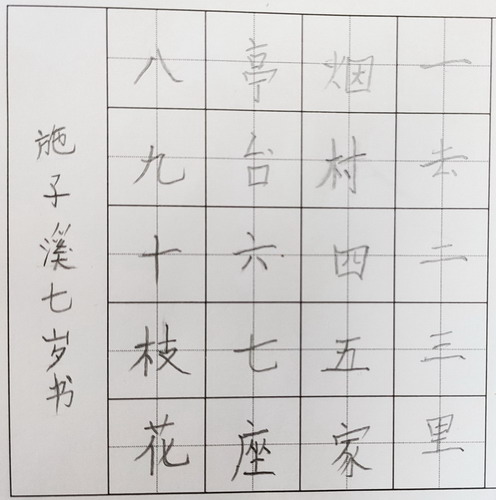 一去二三里
烟村四五家
亭台六七座
八九十枝花
施子溪七岁书